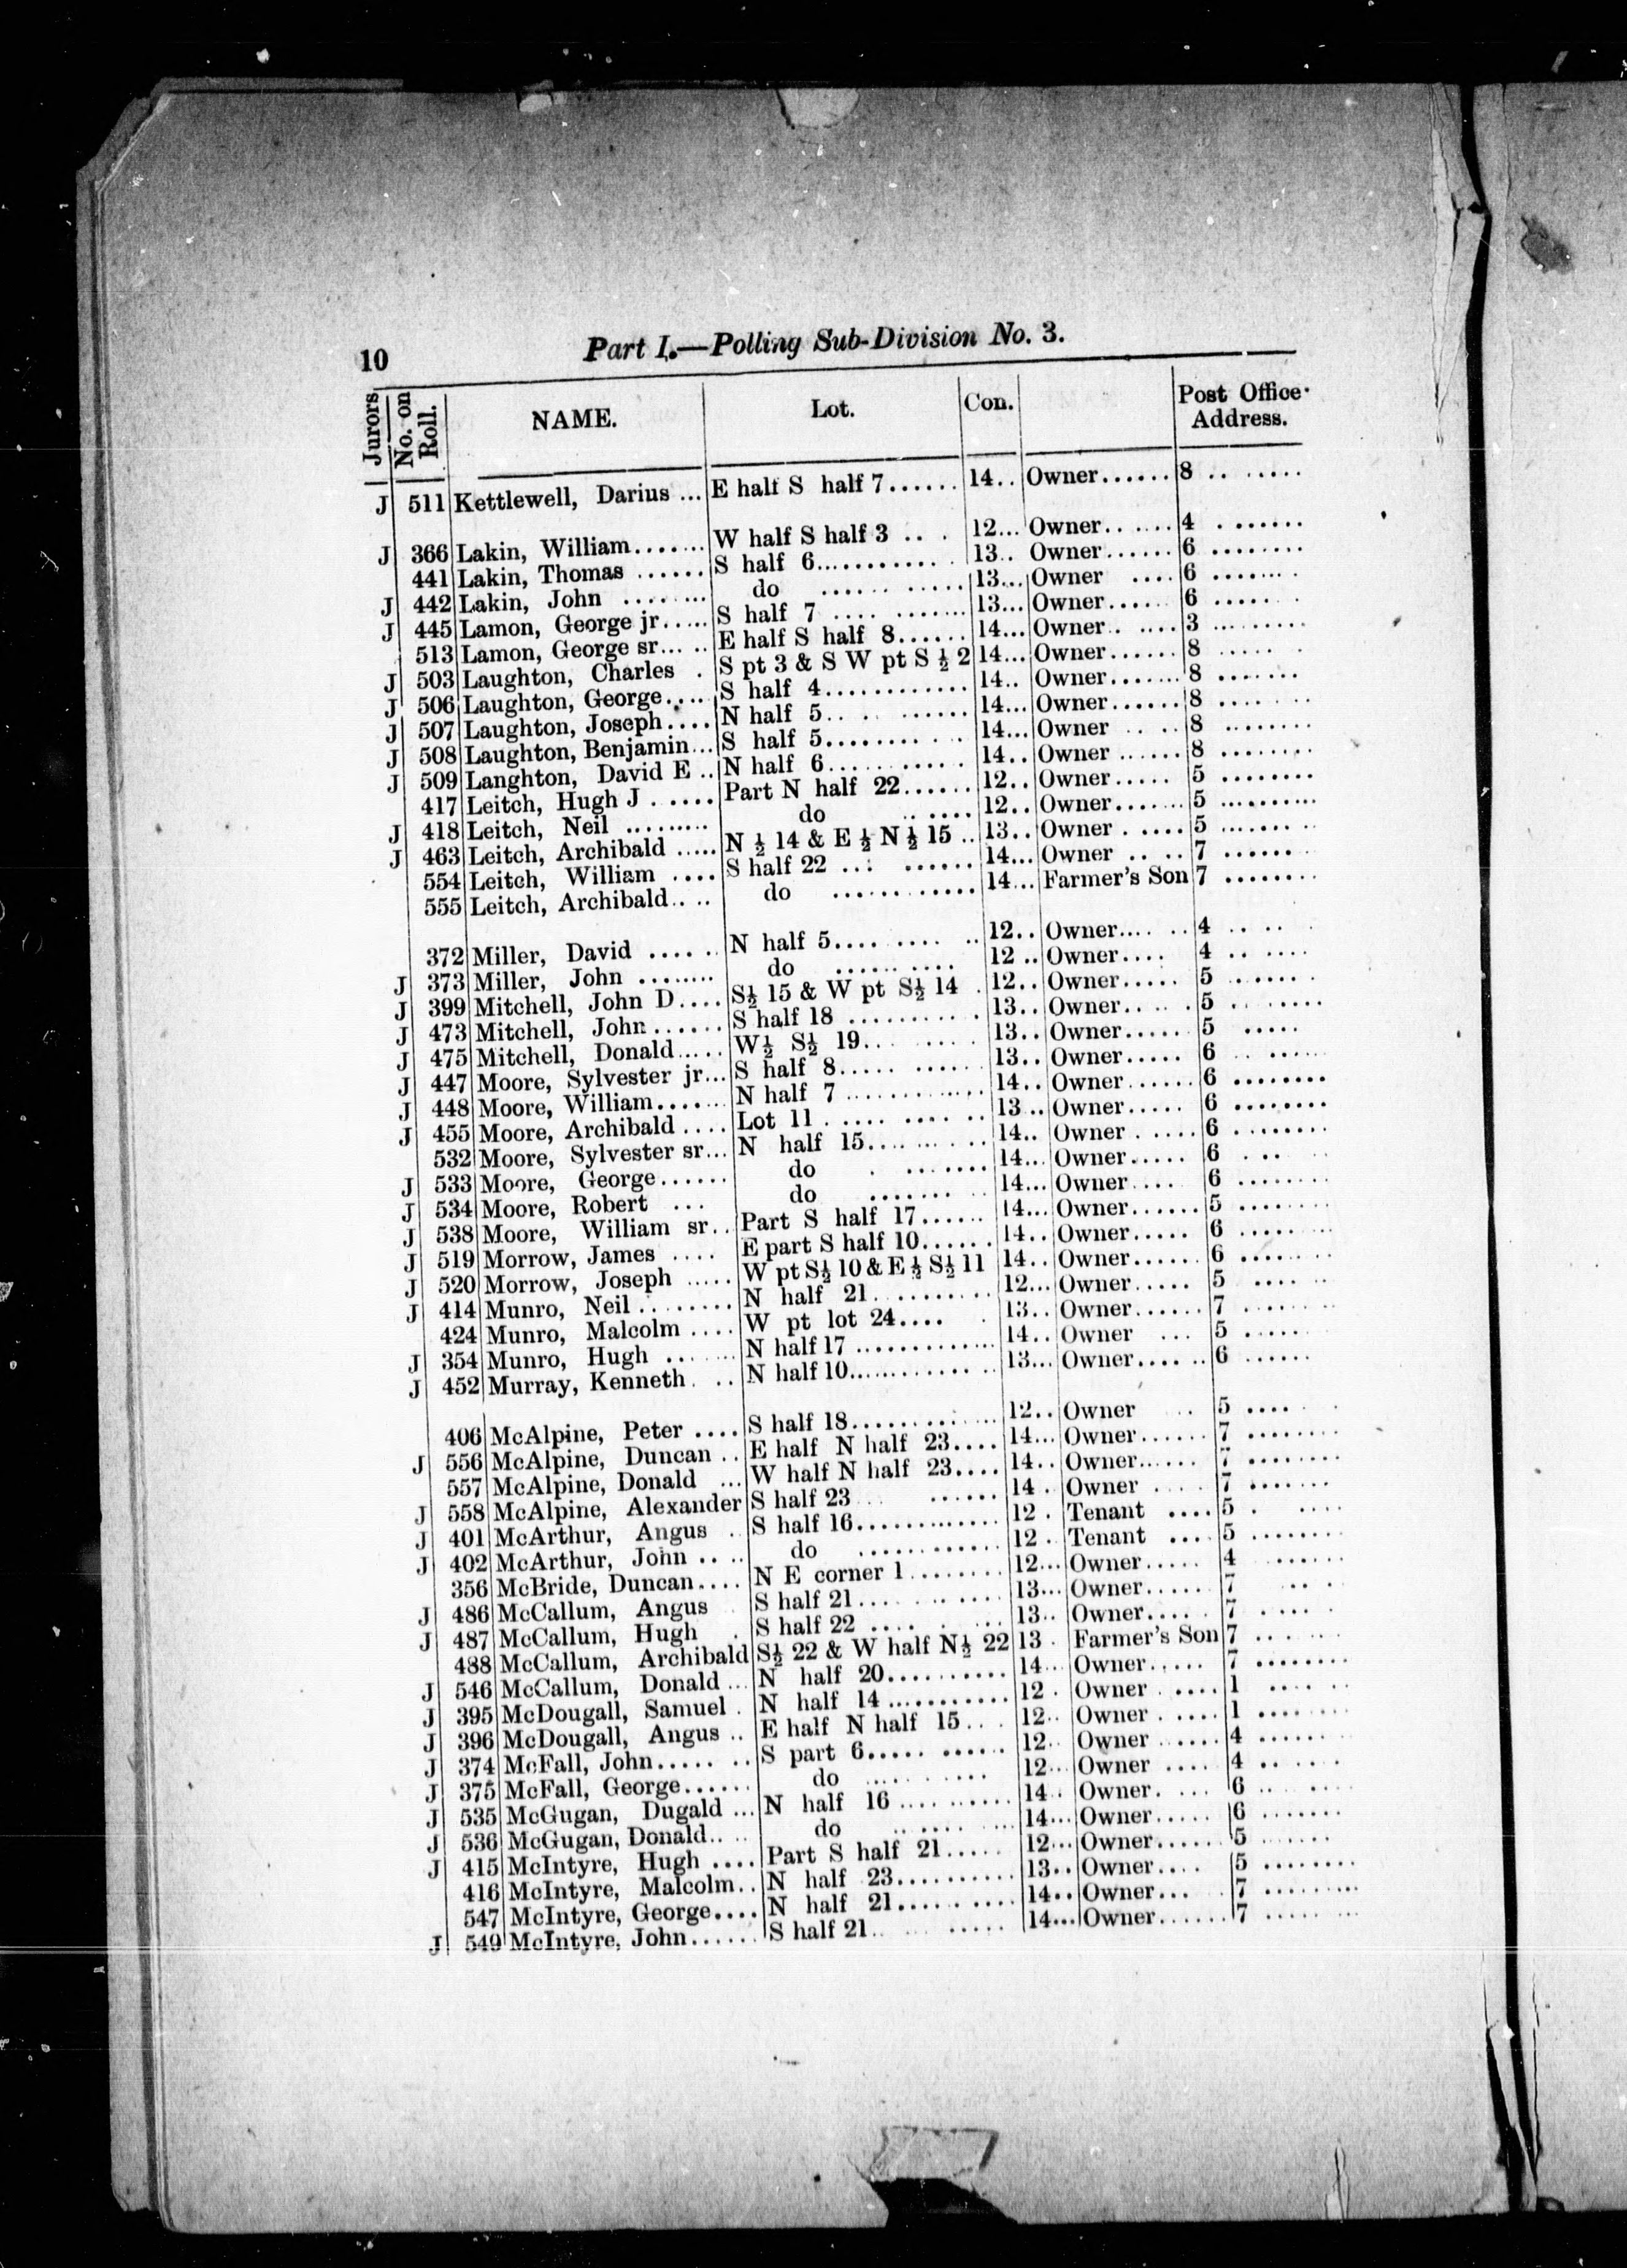 10 Part I.—Polling Sub-Division No. 3.
Jurors No. on Roll. NAME. Lot. Con. Post Office Address.
J 511 Kettlewell, Darius ... E half S half 7...... 14.. Owner...... 8 ........
J 366 Lakin, William....... W half S half 3 .. . 12... Owner...... 4 ........
441 Lakin, Thomas ...... S half 6............ 13.. Owner...... 6 ........
J 442 Lakin, John ........ do ............ 13... Owner .... 6 ........
J 445 Lamon, George jr..... S half 7 ........... 13... Owner...... 6 ........
513 Lamon, George sr..... E half S half 8...... 14... Owner...... 3 .........
J 503 Laughton, Charles . S pt 3 & S W pt S ½ 2 14... Owner...... 8 ......
J 506 Laughton, George..... S half 4............ 14.. Owner....... 8 .......
J 507 Laughton, Joseph.... N half 5........... 14... Owner...... 8 ........
J 508 Laughton, Benjamin... S half 5........... 14... Owner .... 8 ........
J 509 Langhton, David E .. N half 6............ 14.. Owner ...... 8 ........
417 Leitch, Hugh J ..... Part N half 22...... 12.. Owner..... 5 ........
J 418 Leitch, Neil ......... do ...... 12.. Owner....... 5 .........
J 463 Leitch, Archibald ..... N ½ 14 & E ½ N ½ 15 .. 13.. Owner ..... 5 ........
554 Leitch, William .... S half 22 ......... 14... Owner .... 7 .......
555 Leitch, Archibald.... do ............ 14... Farmer's Son 7 ........
372 Miller, David ...... N half 5........... 12.. Owner...... 4 .....
J 373 Miller, John ........ do .......... 12 .. Owner.... 4 ......
J 399 Mitchell, John D.... S½ 15 & W pt S½ 14 . 12.. Owner..... 5 .......
J 473 Mitchell, John...... S half 18 .......... 13.. Owner..... 5 ........
J 475 Mitchell, Donald..... W½ S½ 19......... 13.. Owner...... 5 .....
J 447 Moore, Sylvester jr... S half 8........... 13.. Owner..... 6 ........
J 448 Moore, William....... N half 7 ............ 14.. Owner...... 6 ........
J 455 Moore, Archibald .... Lot 11 ........... 13.. Owner..... 6 ........
532 Moore, Sylvester sr... N half 15.......... 14.. Owner ..... 6 ........
J 533 Moore, George...... do ........ 14... Owner..... 6 .....
J 534 Moore, Robert ... do ......... 14... Owner.... 6 ........
J 538 Moore, William sr.. Part S half 17...... 14... Owner...... 5 ........
J 519 Morrow, James .... E part S half 10...... 14.. Owner..... 6 .........
J 520 Morrow, Joseph ..... W pt S½ 10 & E ½ S½ 11 14.. Owner...... 6 .........
J 414 Munro, Neil ........ N half 21.......... 12... Owner..... 5 ......
424 Munro, Malcolm .... W pt lot 24.... . 13.. Owner...... 7 ........
J 354 Munro, Hugh ....... N half 17 ............. 14.. Owner ... 5 ......
J 452 Murray, Kenneth. .. N half 10............. 13... Owner...... 6 ......
406 McAlpine, Peter .... S half 18............ 12.. Owner .. 5 .....
J 556 McAlpine, Duncan .. E half N half 23.... 14... Owner...... 7 ........
557 McAlpine, Donald ... W half N half 23.... 14.. Owner...... 7 ........
J 558 McAlpine, Alexander S half 23 ...... 14 . Owner .... 7 .......
J 401 McArthur, Angus . S half 16............. 12 . Tenant .... 5 . ....
J 402 McArthur, John .... do ............ 12 . Tenant .... 5 ........
356 McBride, Duncan.... N E corner 1........ 12... Owner..... 4 .......
J 486 McCallum, Angus S half 21........... 13... Owner...... 7 ....
J 487 McCallum, Hugh . S half 22 ......... 13.. Owner..... 7 .....
488 McCallum, Archibald S½ 22 & W half N½ 22 13 . Farmer's Son 7 .......
J 546 McCallum, Donald ... N half 20.......... 14... Owner..... 7 ........
J 395 McDougall, Samuel . N half 14 ........... 12 . Owner ..... 1 ......
J 396 McDougall, Angus .. E half N half 15.... 12.. Owner ..... 1 ........
J 374 McFall, John....... S part 6........... 12.. Owner ...... 4 ........
J 375 McFall, George...... do .......... 12... Owner .... 4 .......
J 535 McGugan, Dugald ... N half 16 .......... 14.. Owner..... 6 ......
J 536 McGugan, Donald.... do .......... 14... Owner..... 6 .......
J 415 McIntyre, Hugh .... Part S half 21..... 12... Owner...... 5 .......
416 McIntyre, Malcolm.. N half 23.......... 13.. Owner.... 5 ........
547 McIntyre, George.... N half 21.......... 14.. Owner... 7 .........
J 549 McIntyre, John...... S half 21....... 14... Owner...... 7 .........